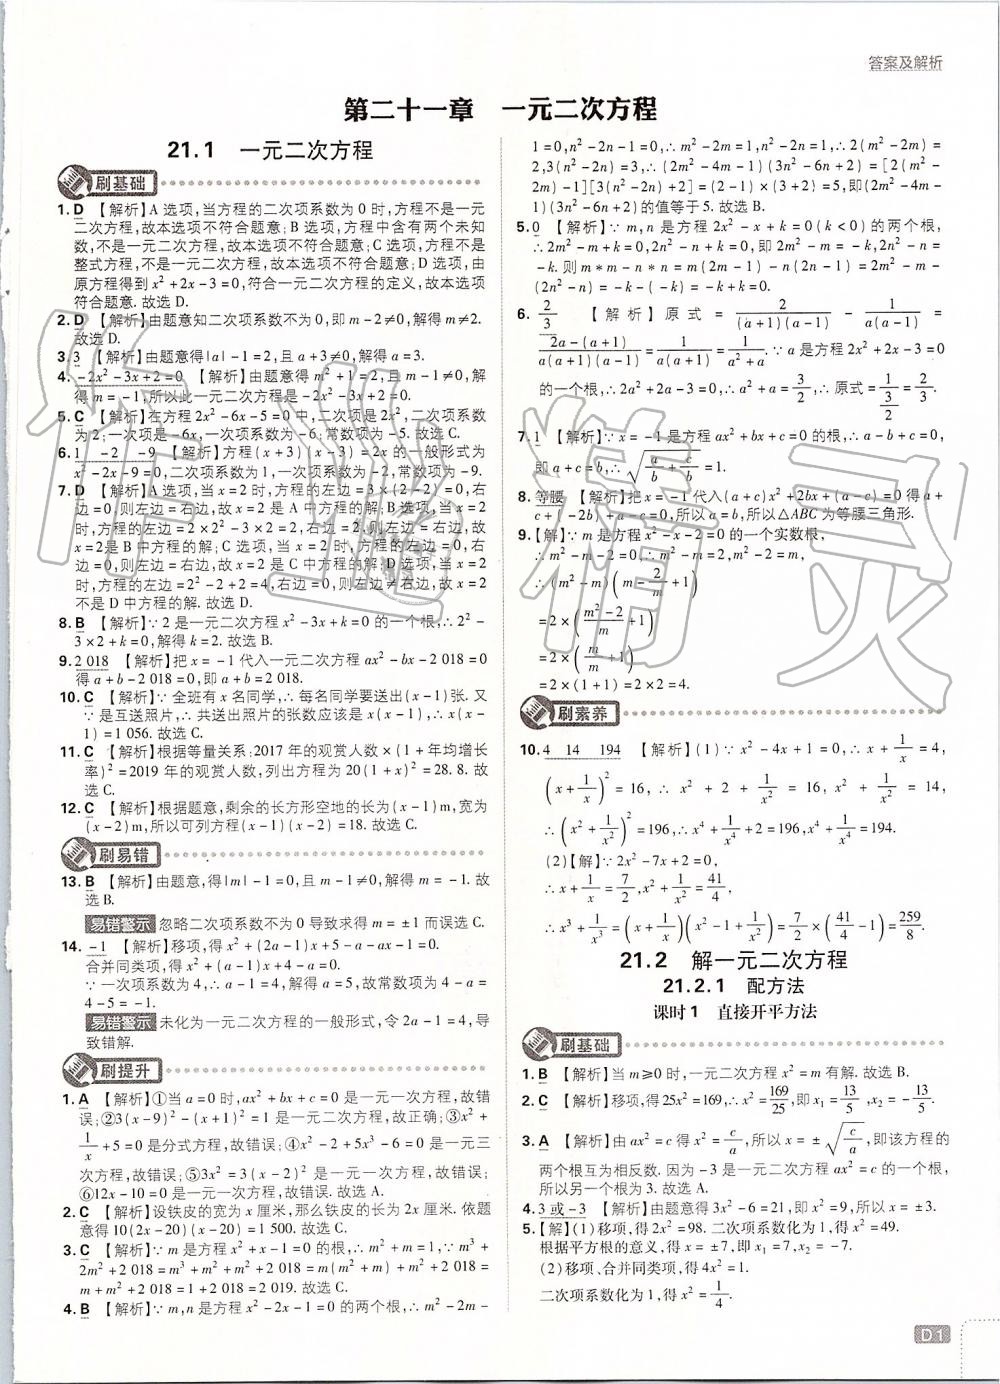 答案及解析
第二十一章　一元二次方程
21.1　一元二次方程
刷基础
1. D 【解析】A选项,当方程的二次项系数为0时,方程不是一元
二次方程,故本选项不符合题意;B选项,方程中含有两个未知
数,不是一元二次方程,故本选项不符合题意;C选项,方程不是
整式方程,不是一元二次方程,故本选项不符合题意;D选项,由
原方程得到x²+2x-3=0,符合一元二次方程的定义,故本选项
符合题意.故选D.
2. D 【解析】由题意知二次项系数不为0,即m-2≠0,解得m≠2.
故选D.
3. 3 【解析】由题意得|a|-1=2,且a+3≠0,解得a=3.
4. -2x²-3x+2=0 【解析】由题意得m²+1=2,且m-1≠0,解
得m=-1,所以此一元二次方程是-2x²-3x+2=0.
5. C 【解析】在方程2x²-6x-5=0中,二次项是2x²,二次项系数
为2;一次项是-6x,一次项系数为-6;常数项为-5.故选C.
6. 1　-2　-9 【解析】方程(x+3)(x-3)=2x的一般形式为
x²-2x-9=0,二次项系数为1,一次项系数为-2,常数项为-9.
7. D 【解析】A选项,当x=2时,方程的左边=3×(2-2)=0,右
边=0,则左边=右边,故x=2是A中方程的解;B选项,当x=2
时,方程的左边=2×2²-3×2=2,右边=2,则左边=右边,故
x=2是B中方程的解;C选项,当x=2时,方程的左边=0,右边
=0,则左边=右边,故x=2是C中方程的解;D选项,当x=2时,
方程的左边=2²-2+2=4,右边=0,则左边≠右边,故x=2
不是D中方程的解.故选D.
8. B 【解析】∵2是一元二次方程x²-3x+k=0的一个根,∴2²-
3×2+k=0,解得k=2.故选B.
9. 2 018 【解析】把x=-1代入一元二次方程ax²-bx-2 018=0
得a+b-2 018=0,即a+b=2 018.
10. C 【解析】∵全班有x名同学,∴每名同学要送出(x-1)张.又
∵是互送照片,∴共送出照片的张数应该是x(x-1),∴x(x-
1)=1 056.故选C.
11. C 【解析】根据等量关系:2017年的观赏人数×(1+年均增长
率)²=2019年的观赏人数,列出方程为20(1+x)²=28.8.故
选C.
12. C 【解析】根据题意,剩余的长方形空地的长为(x-1)m,宽为
(x-2)m,所以可列方程(x-1)(x-2)=18.故选C.
刷易错
13. B 【解析】由题意,得|m|-1=0,且m-1≠0,解得m=-1.故
选B.
易错警示 忽略二次项系数不为0导致求得m=±1而误选C.
14. -1 【解析】移项,得x²+(2a-1)x+5-a-ax-1=0.
合并同类项,得x²+(a-1)x+4-a=0.
∵一次项系数为4,∴a-1=4,解得a=5,∴常数项为4-a=
4-5=-1.
易错警示 未化为一元二次方程的一般形式,令2a-1=4,导
致错解.
刷提升
1. A 【解析】①当a=0时,ax²+bx+c=0是一元一次方程,故错
误;②3(x-9)²-(x+1)²=1是一元二次方程,故正确;③x²+
1/x+5=0是分式方程,故错误;④x²-2+5x³-6=0是一元三
次方程,故错误;⑤3x²=3(x-2)²是一元一次方程,故错误;
⑥12x-10=0是一元一次方程,故错误.故选A.
2. C 【解析】设铁皮的宽为x厘米,那么铁皮的长为2x厘米.依题
意得10(2x-20)(x-20)=1 500.故选C.
3. C 【解析】∵m是方程x²+x-1=0的根,∴m²+m=1,∴m³+
2m²+2 018=m³+m²+m²+2 018=m(m²+m)+m²+2 018
=m+m²+2 018=1+2 018=2 019.故选C.
4. B 【解析】∵m,n是方程x²-2x-1=0的两个根,∴m²-2m-
1=0,n²-2n-1=0,∴m²-2m=1,n²-2n=1,∴2(m²-2m)=
2,3(n²-2n)=3,∴(2m²-4m-1)(3n²-6n+2)=[2(m²-
2m)-1][3(n²-2n)+2]=(2-1)×(3+2)=5,即(2m²-4m-
1)(3n²-6n+2)的值等于5.故选B.
5. 0 【解析】∵m,n是方程2x²-x+k=0(k<0)的两个根,
∴2m²-m+k=0,2n²-n+k=0,即2m²-m=-k,2n²-n=
-k.则m*m-n*n=m(2m-1)-n(2n-1)=2m²-m-
(2n²-n)=-k-(-k)=-k+k=0.
6. 2/3 【解析】原式=2/((a+1)(a-1))-1/(a(a-1))=
(2a-(a+1))/(a(a+1)(a-1))=1/(a(a+1))=1/(a²+a).∵a是方程2x²+2x-3=0
的一个根,∴2a²+2a-3=0,∴a²+a=3/2,∴原式=1/(3/2)=2/3.
7. 1 【解析】∵x=-1是方程ax²+bx+c=0的根,∴a-b+c=0,
即a+c=b,∴√(a/b+c/b)=1.
8. 等腰 【解析】把x=-1代入(a+c)x²+2bx+(a-c)=0得a+
c+(-2b)+a-c=0,所以a=b,所以△ABC为等腰三角形.
9. 【解】∵m是方程x²-x-2=0的一个实数根,
∴m²-m-2=0,∴m²-m=2,m²-2=m,
∴(m²-m)(m-2/m+1)
=2×((m²-2)/m+1)
=2×(m/m+1)
=2×(1+1)=2×2=4.
刷素养
10. 4　14　194 【解析】(1)∵x²-4x+1=0,∴x+1/x=4,
(x+1/x)²=16,∴x²+2+1/x²=16,∴x²+1/x²=14,
∴(x²+1/x²)²=196,∴x⁴+1/x⁴+2=196,∴x⁴+1/x⁴=194.
(2)【解】∵2x²-7x+2=0,
∴x+1/x=7/2,x²+1/x²=41/4,
∴x³+1/x³=(x+1/x)(x²-1+1/x²)=7/2×(41/4-1)=259/8.
21.2　解一元二次方程
21.2.1　配方法
课时1　直接开平方法
刷基础
1. B 【解析】当m≥0时,一元二次方程x²=m有解.故选B.
2. C 【解析】移项,得25x²=169,∴x²=169/25,即x₁=13/5,x₂=-13/5.
3. A 【解析】由ax²=c得x²=c/a,所以x=±√(c/a),即该方程的
两个根互为相反数.因为-3是一元二次方程ax²=c的一个根,
所以另一个根为3.故选A.
4. 3或-3 【解析】由题意得3x²-6=21,即x²=9,所以x=±3.
5. 【解】(1)移项,得2x²=98.二次项系数化为1,得x²=49.
根据平方根的意义,得x=±7,即x₁=7,x₂=-7.
(2)移项、合并同类项,得4x²=1.
二次项系数化为1,得x²=1/4.
D1
作业精灵